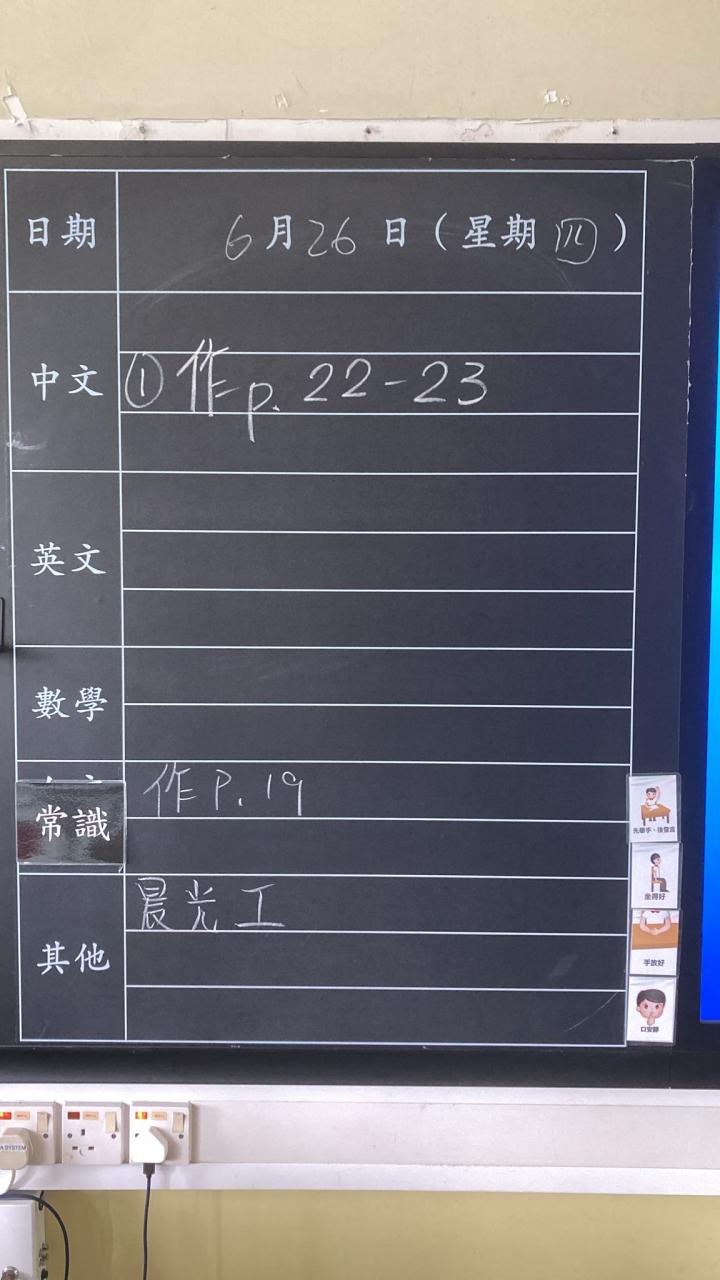 日期 6月26日(星期四)
中文 ①作p. 22-23
英文
數學
常識 作P. 19
其他 晨光工
先舉手、後發言
坐得好
手放好
口安靜